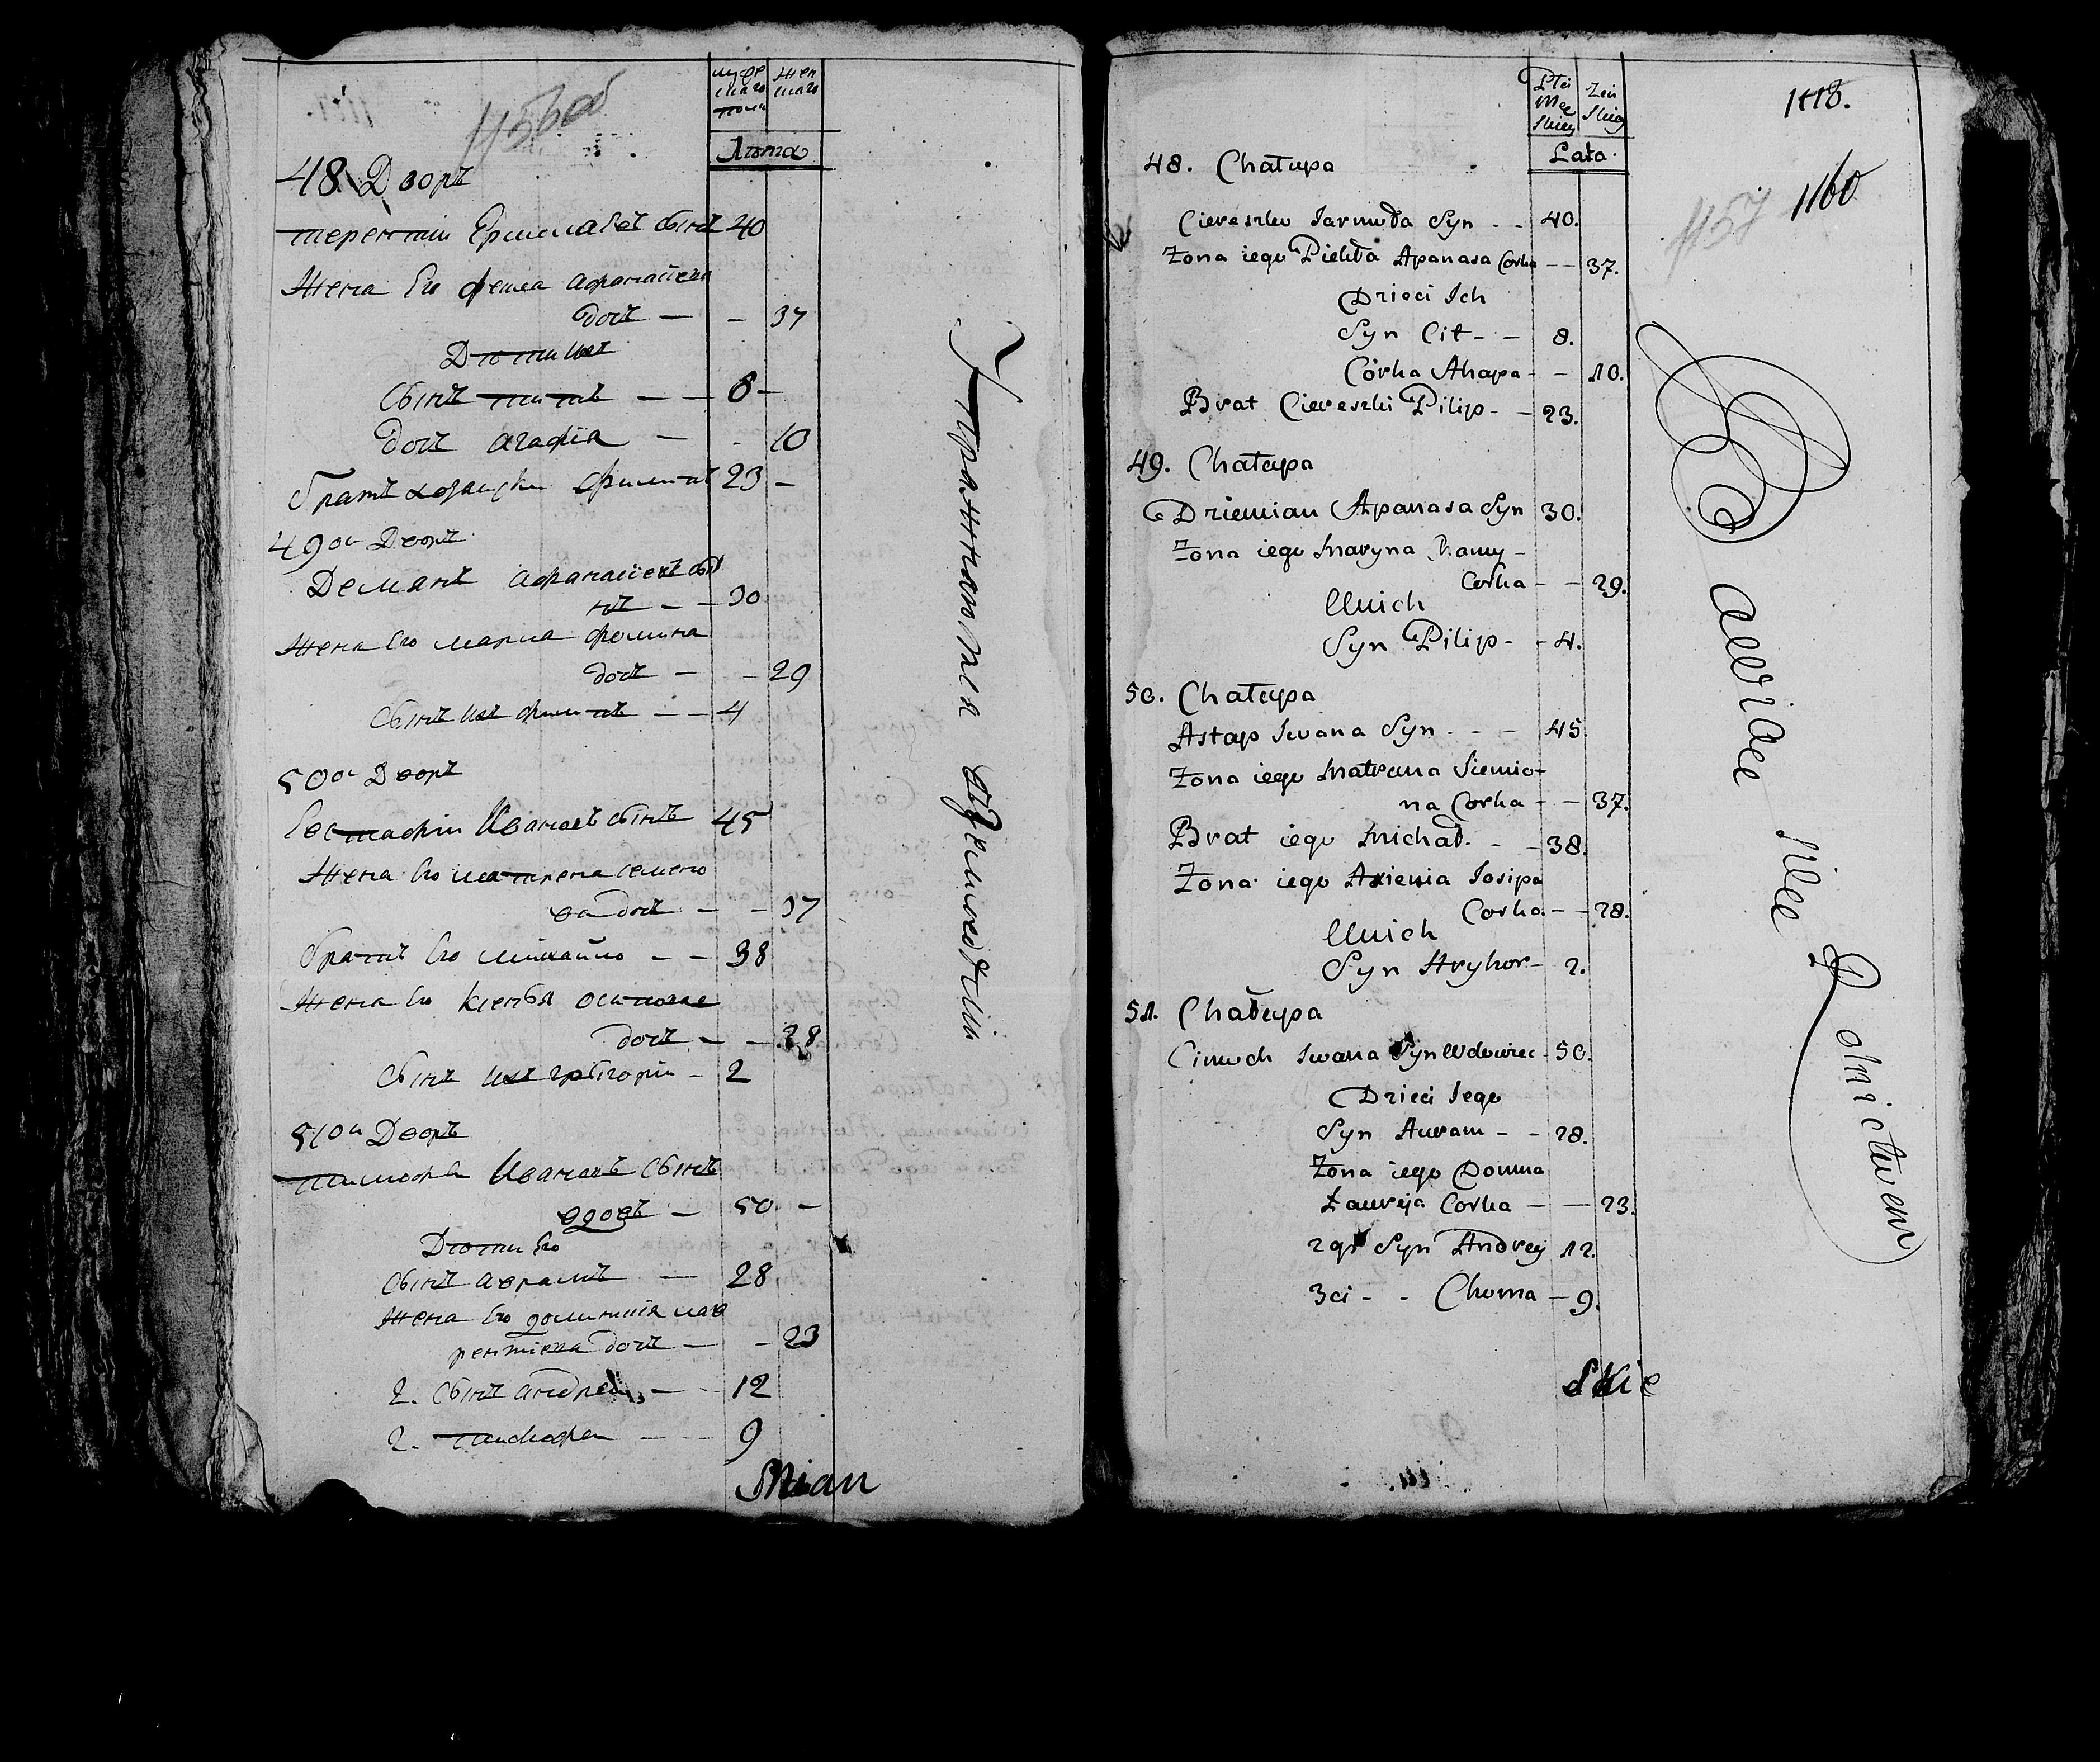 1156 об
муже
скаго
пола
жен
скаго
Лѣта
48 Дворъ
терентіи Ермолаевъ сынъ 40
Жена Его фекла афанасіева
дочь — - 37
Дѣти ихъ
Сынъ титъ — — 8 -
дочь агафія — - 10
братъ филипъ 23 -
49он Дворъ
Демянъ афанасіевъ сы
нъ — — 30
Жена Его мариа фомина
дочь — - 29
Сынъ ихъ филипъ — — 4
50он Дворъ
Евстафіи Ивановъ сынъ 45
Жена Его матрена семено
ва дочь — - 37
братъ Его михайло — — 38
Жена Его Ксенья осипова
дочь — - 28
Сынъ ихъ грѣгоріи — 2
51он Дворъ
тимофеи Ивановъ Сынъ
вдовъ — 50 -
Дѣти Его
Сынъ аврамъ — 28
Жена Его домникія лав
рентиева дочь — - 23
2. Сынъ андреи — 12
2. тимофеи — - 9
Mian
1118.
1157 1160
Płci
Męs
skiey
Żeń
skiey
Lata
48. Chałupa
Ciereszko Jarmoła Syn - - 40.
Zona iego Piekła Apanasa Corka - - 37.
Dzieci Ich
Syn Cit - - 8.
Córka Ahapa - - 10.
Brat Ciereszki Pilip - - 23.
49. Chałupa
Dziemian Apanasa Syn 30.
Zona iego Maryna Chamy -
Corka - - 29.
Unich
Syn Pilip - - 4.
50. Chałupa
Astap Iwana Syn - - - 45.
Zona iego Matrana Siemio-
na Corka - - 37.
Brat iego Michał - - 38.
Zona iego Axienia Josipa
Corka - - 28.
Unich
Syn Hryhor - 2.
51. Chałupa
Cimoch Iwana Syn Wdowiec - 50.
Dzieci Iego
Syn Auram - - 28.
Zona iego Domna
Ławreja Corka - - 23.
2gi Syn Andrey 12.
3ci - - Choma - 9.
Skie